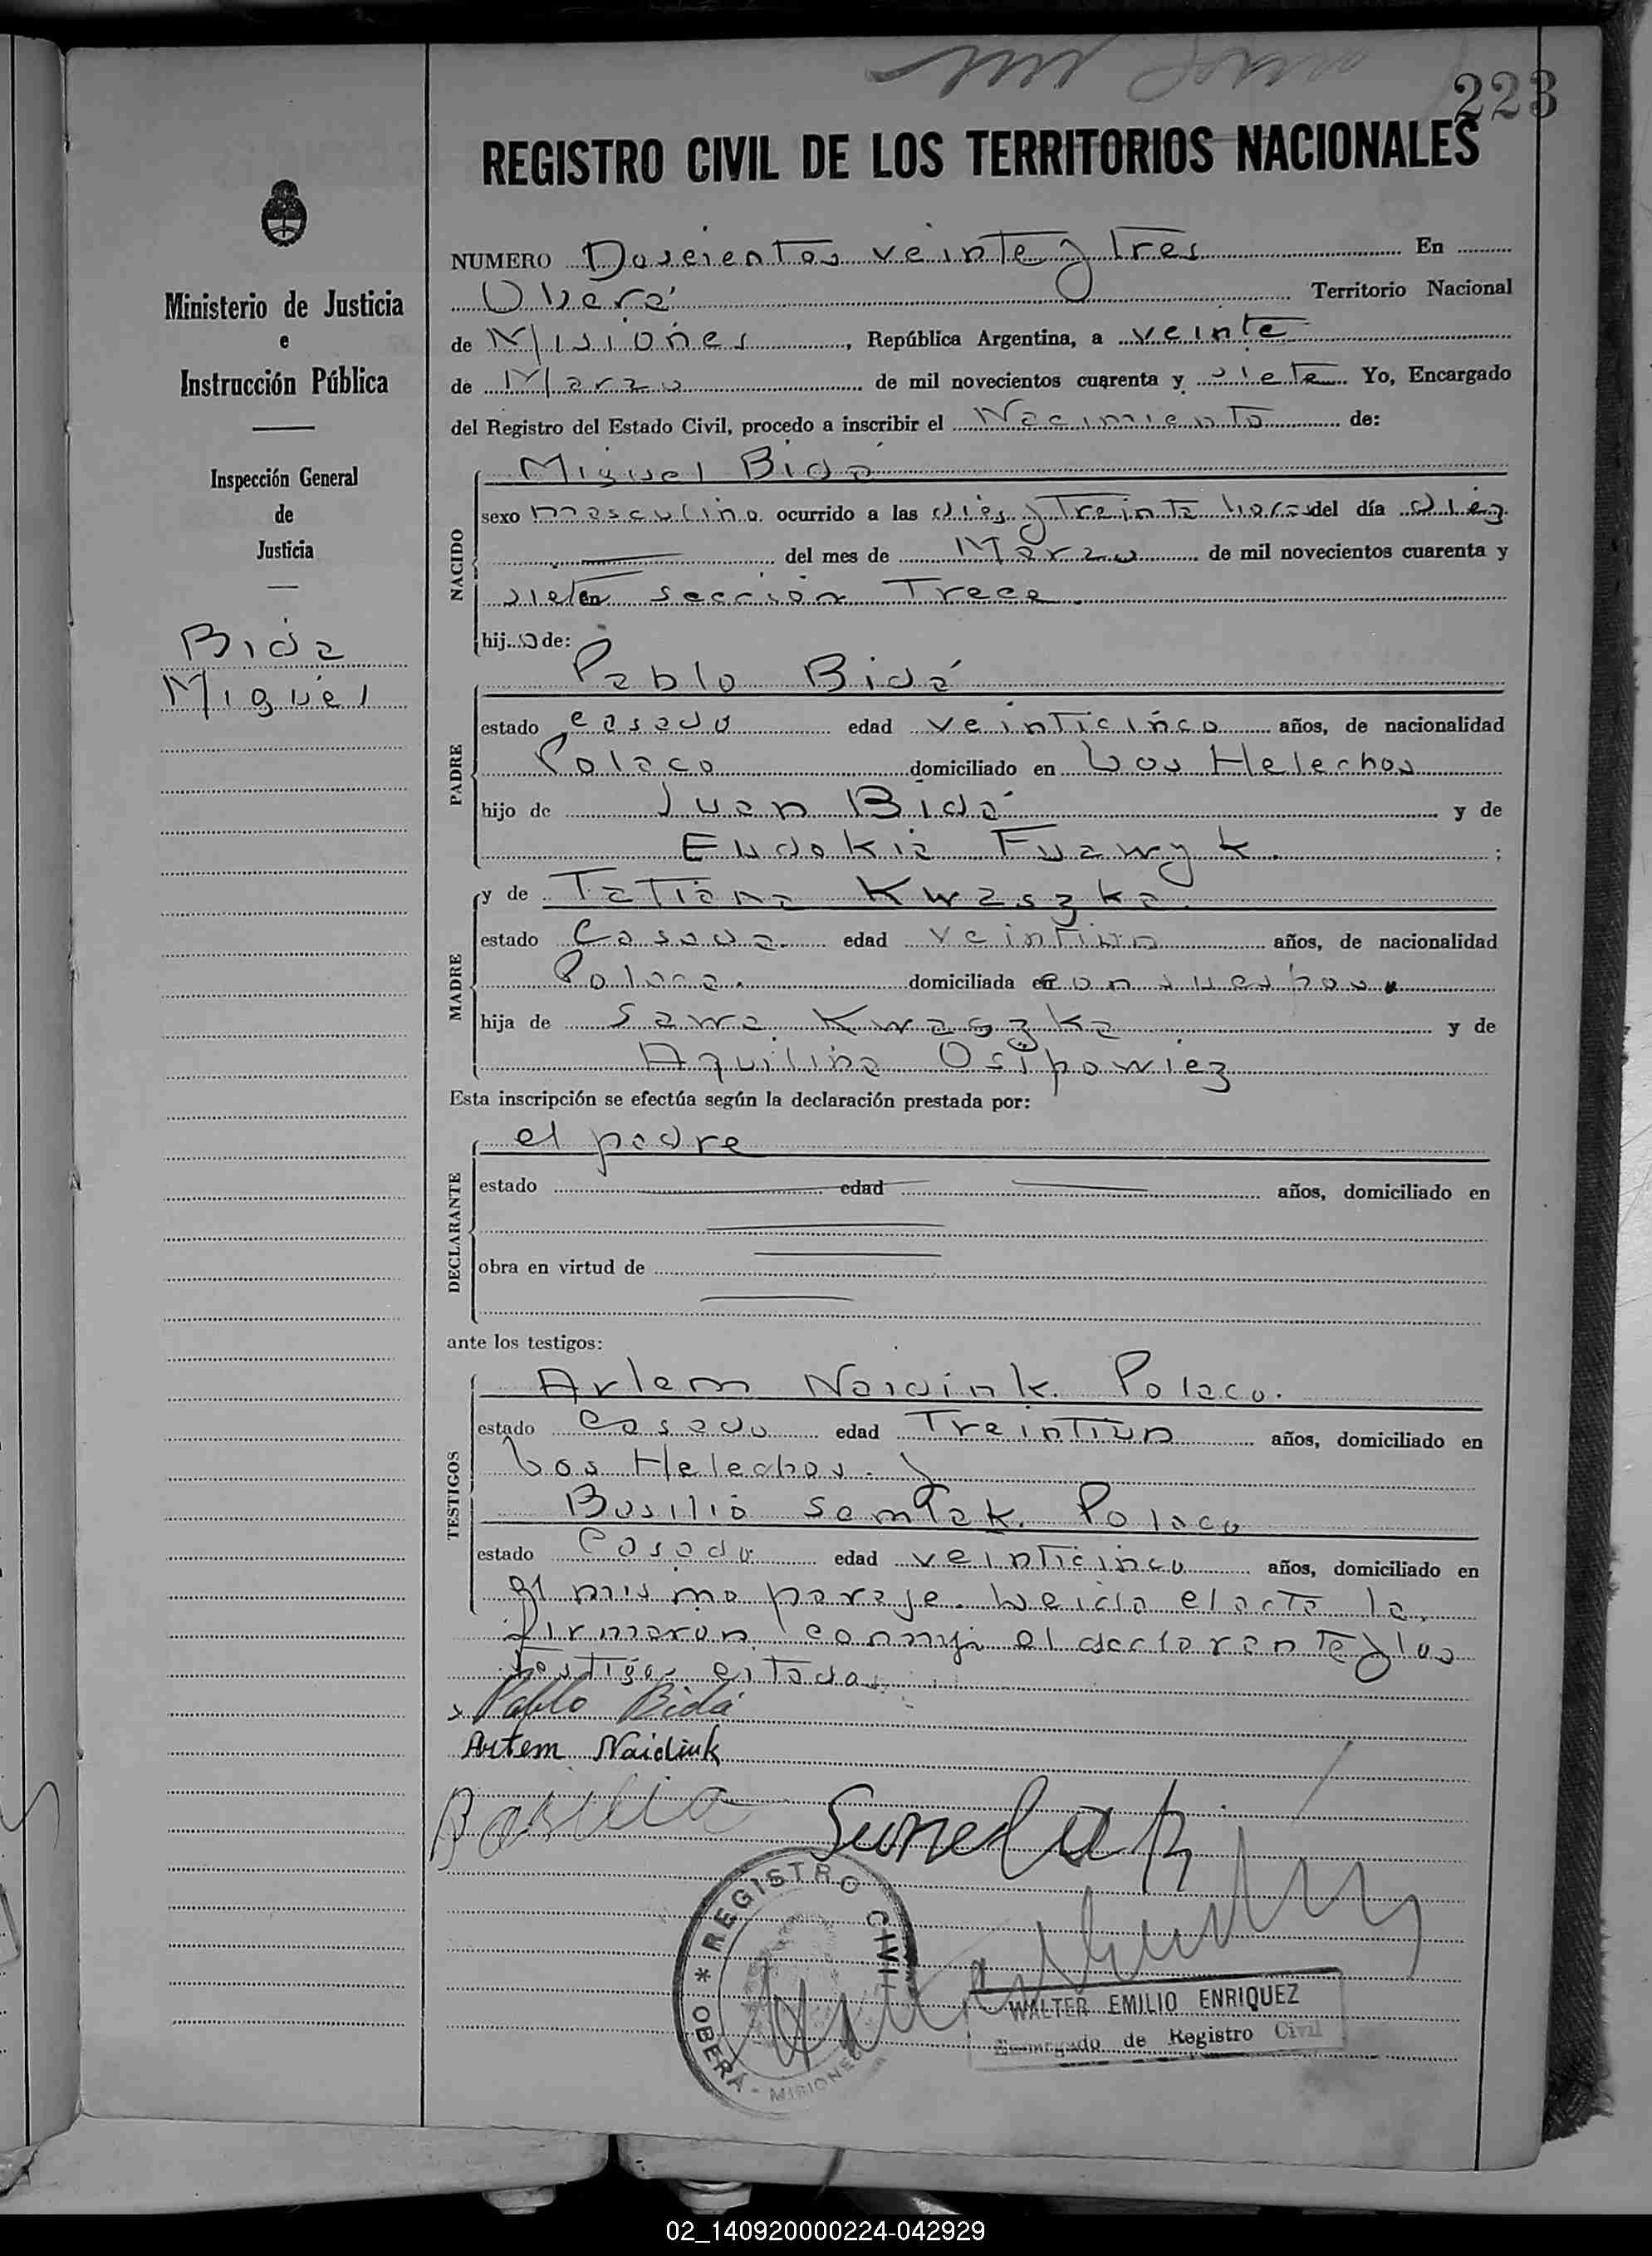 223
REGISTRO CIVIL DE LOS TERRITORIOS NACIONALES
NUMERO Doscientos veinte y Tres En
Oberá Territorio Nacional
de Misiones, República Argentina, a veinte
de Marzo de mil novecientos cuarenta y siete Yo, Encargado
del Registro del Estado Civil, procedo a inscribir el Nacimiento de:
Ministerio de Justicia
e
Instrucción Pública
Inspección General
de
Justicia
Bida
Miguel
NACIDO
Miguel Bidá
sexo masculino ocurrido a las diez y Treinta horas del día diez
del mes de Marzo de mil novecientos cuarenta y
siete en sección Trece
hijo de:
PADRE
Pablo Bidá
estado casado edad veinticinco años, de nacionalidad
Polaco domiciliado en Los Helechos
hijo de Juan Bidá y de
Eudokia ;
MADRE
y de Tatiana Kwaszka
estado Casada edad veintiun años, de nacionalidad
Polaca domiciliada en con su esposo
hija de Sawa Kwaszka y de
Aquilina Osipowicz
Esta inscripción se efectúa según la declaración prestada por:
DECLARANTE
el padre
estado edad años, domiciliado en
obra en virtud de
ante los testigos:
TESTIGOS
Artem Naidiuk. Polaco.
estado Casado edad Treintiun años, domiciliado en
Los Helechos. y
Basilio Semtak. Polaco
estado Casado edad veinticinco años, domiciliado en
el mismo paraje. Leida el acta la
firmaron conmigo el declarante y los
testigos citados
x Pablo Bidá
Artem Naidiuk
Basilio
REGISTRO CIVIL
* OBERÁ - MISIONES
WALTER EMILIO ENRIQUEZ
Encargado de Registro Civil
02_140920000224-042929